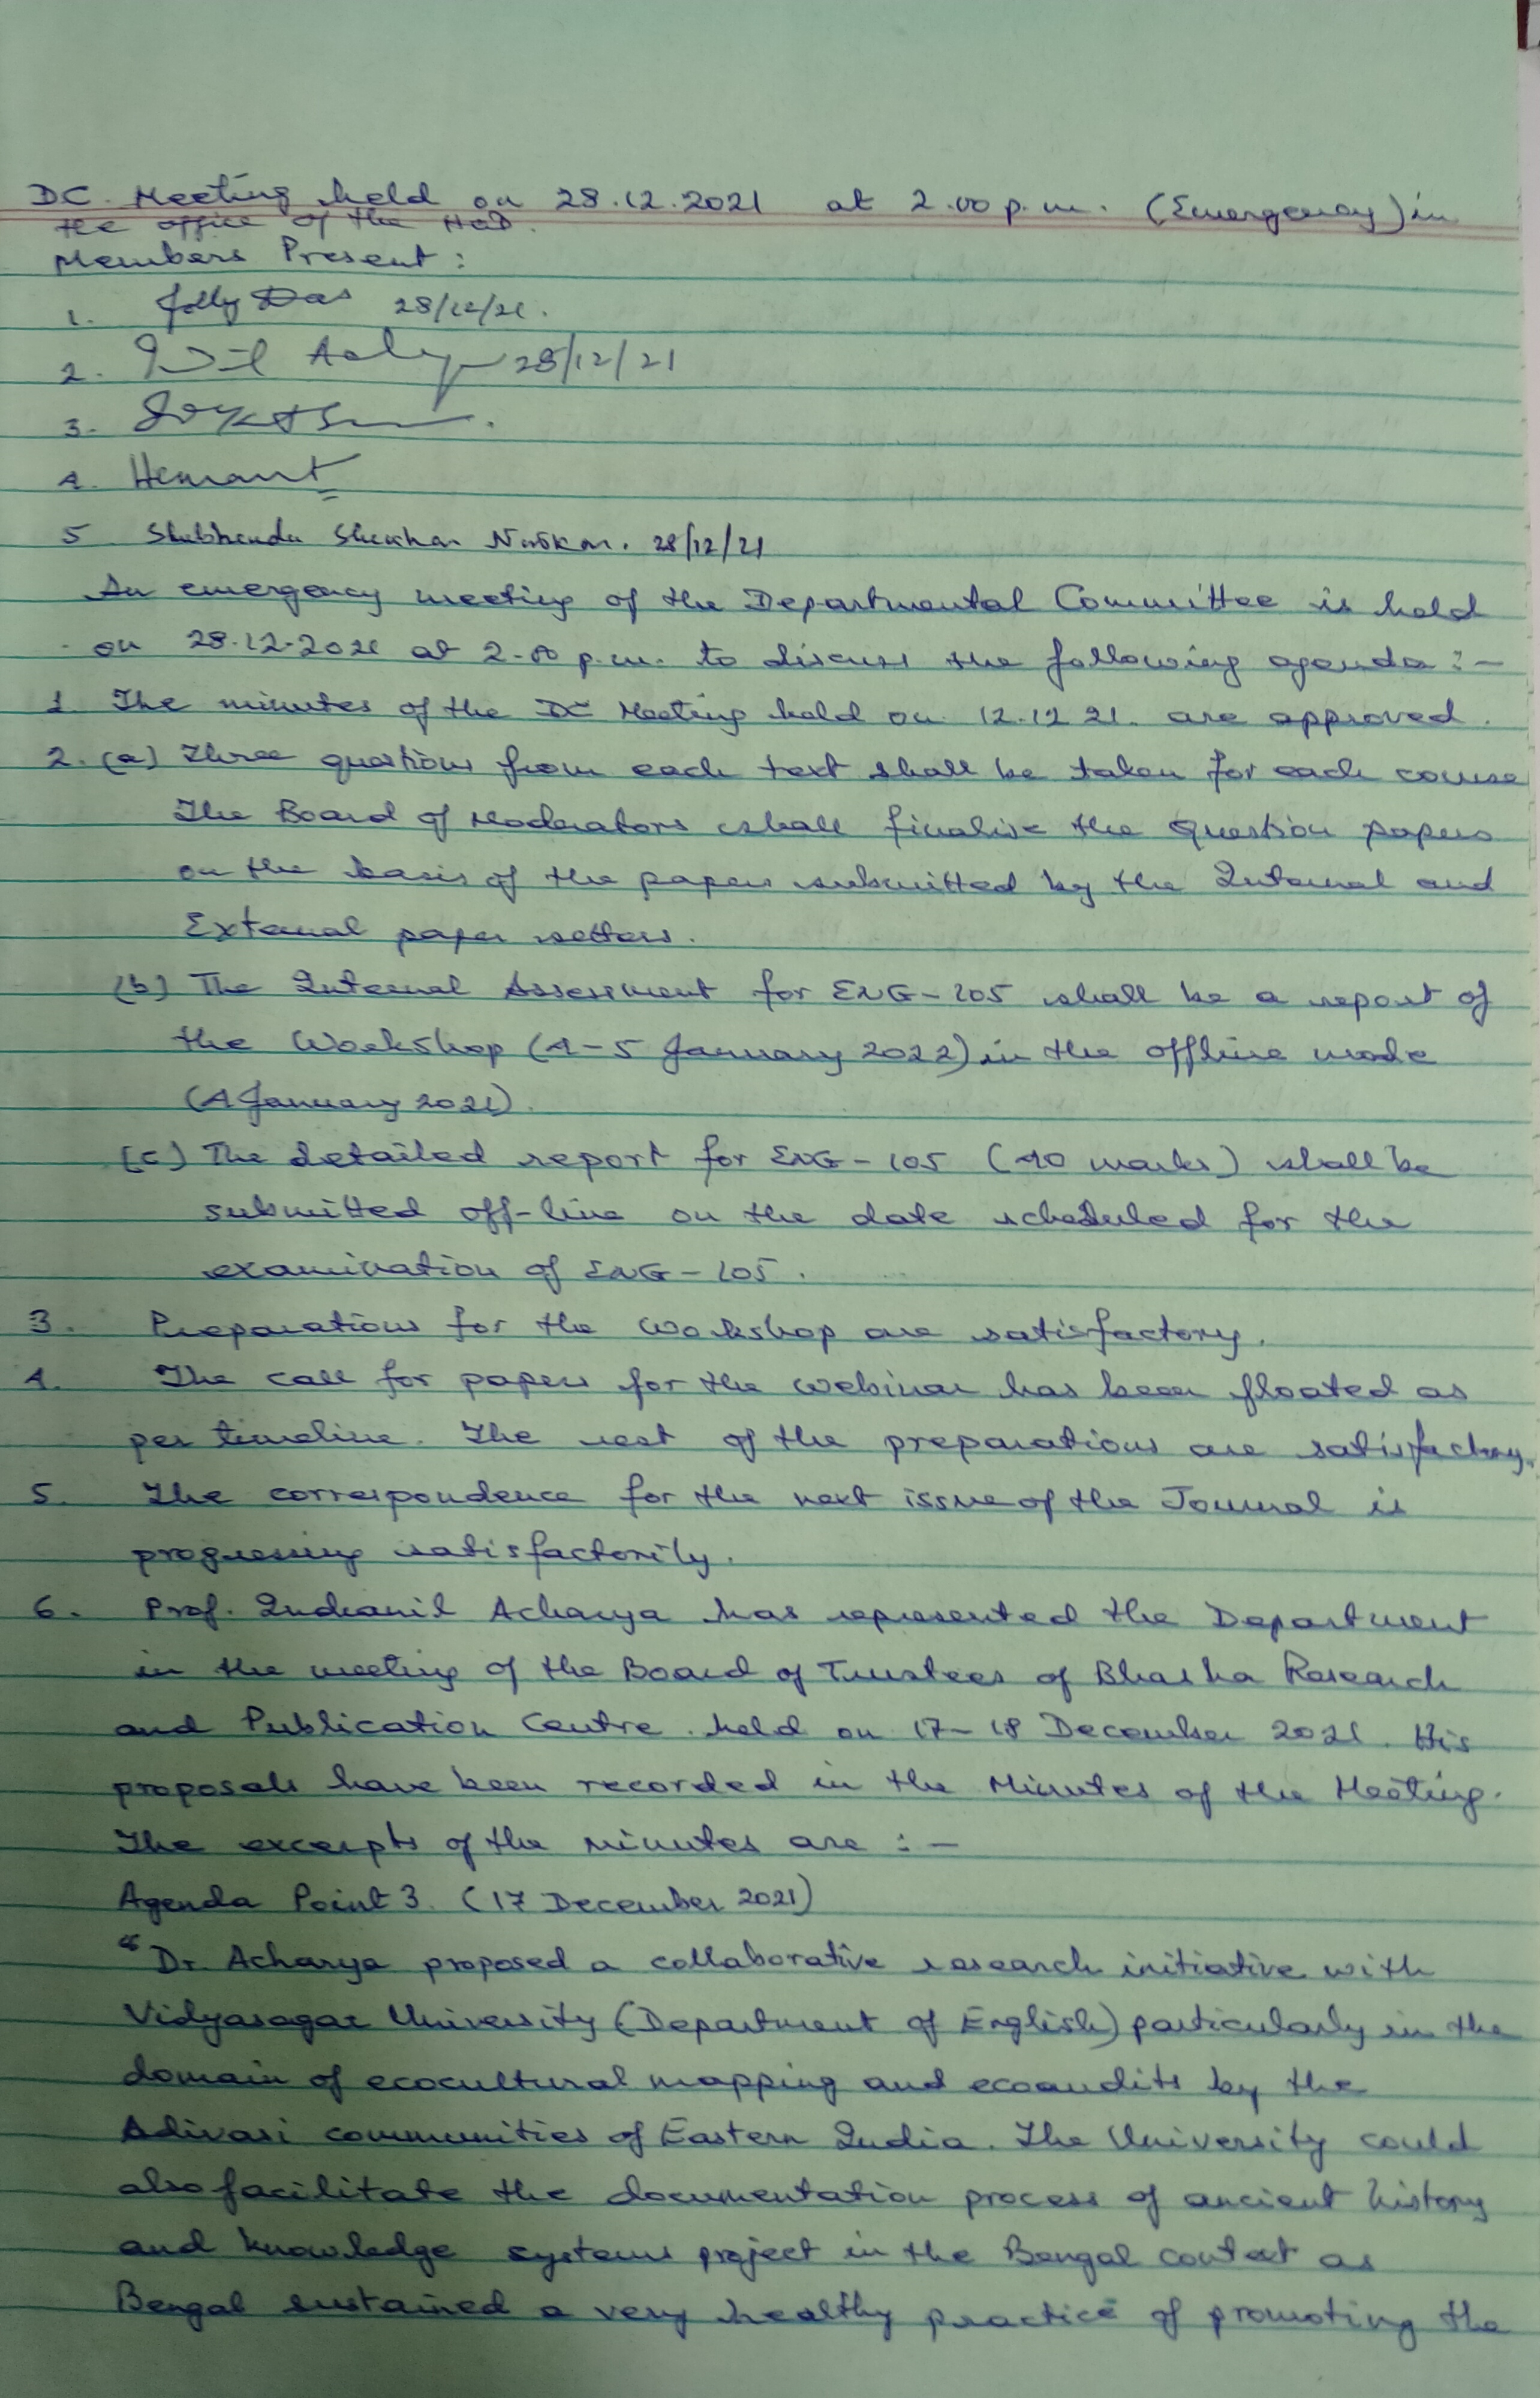 DC. Meeting held on 28.12.2021 at 2.00 p.m. (Emergency) in
the office of the HOD.
Members Present :
1. Jolly Das 28/12/21.
2. 28/12/21
3.
4. Hemant
5 Shubhendu Shekhar Naskar. 28/12/21
An emergency meeting of the Departmental Committee is held
on 28.12.2021 at 2.00 p.m. to discuss the following agenda :-
1. The minutes of the DC Meeting held on 12.12 21. are approved.
2. (a) Three questions from each text shall be taken for each course
The Board of Moderators shall finalise the question papers
on the basis of the papers submitted by the Internal and
External paper setters.
(b) The Internal Assessment for ENG-105 shall be a report of
the Workshop (4-5 January 2022) in the offline mode
(4 January 2021)
(c) The detailed report for ENG-105 (40 marks) shall be
submitted off-line on the date scheduled for the
examination of ENG-105.
3. Preparations for the Workshop are satisfactory.
4. The call for papers for the webinar has been floated as
per timeline. The rest of the preparations are satisfactory.
5. The correspondence for the next issue of the Journal is
progressing satisfactorily.
6. Prof. Indranil Acharya has represented the Department
in the meeting of the Board of Trustees of Bhasha Research
and Publication Centre held on 17-18 December 2021. His
proposals have been recorded in the Minutes of the Meeting.
The excerpts of the minutes are :-
Agenda Point 3. (17 December 2021)
"Dr. Acharya proposed a collaborative research initiative with
Vidyasagar University (Department of English) particularly in the
domain of ecocultural mapping and ecoaudits by the
Adivasi communities of Eastern India. The University could
also facilitate the documentation process of ancient history
and knowledge systems project in the Bengal context as
Bengal sustained a very healthy practice of promoting the